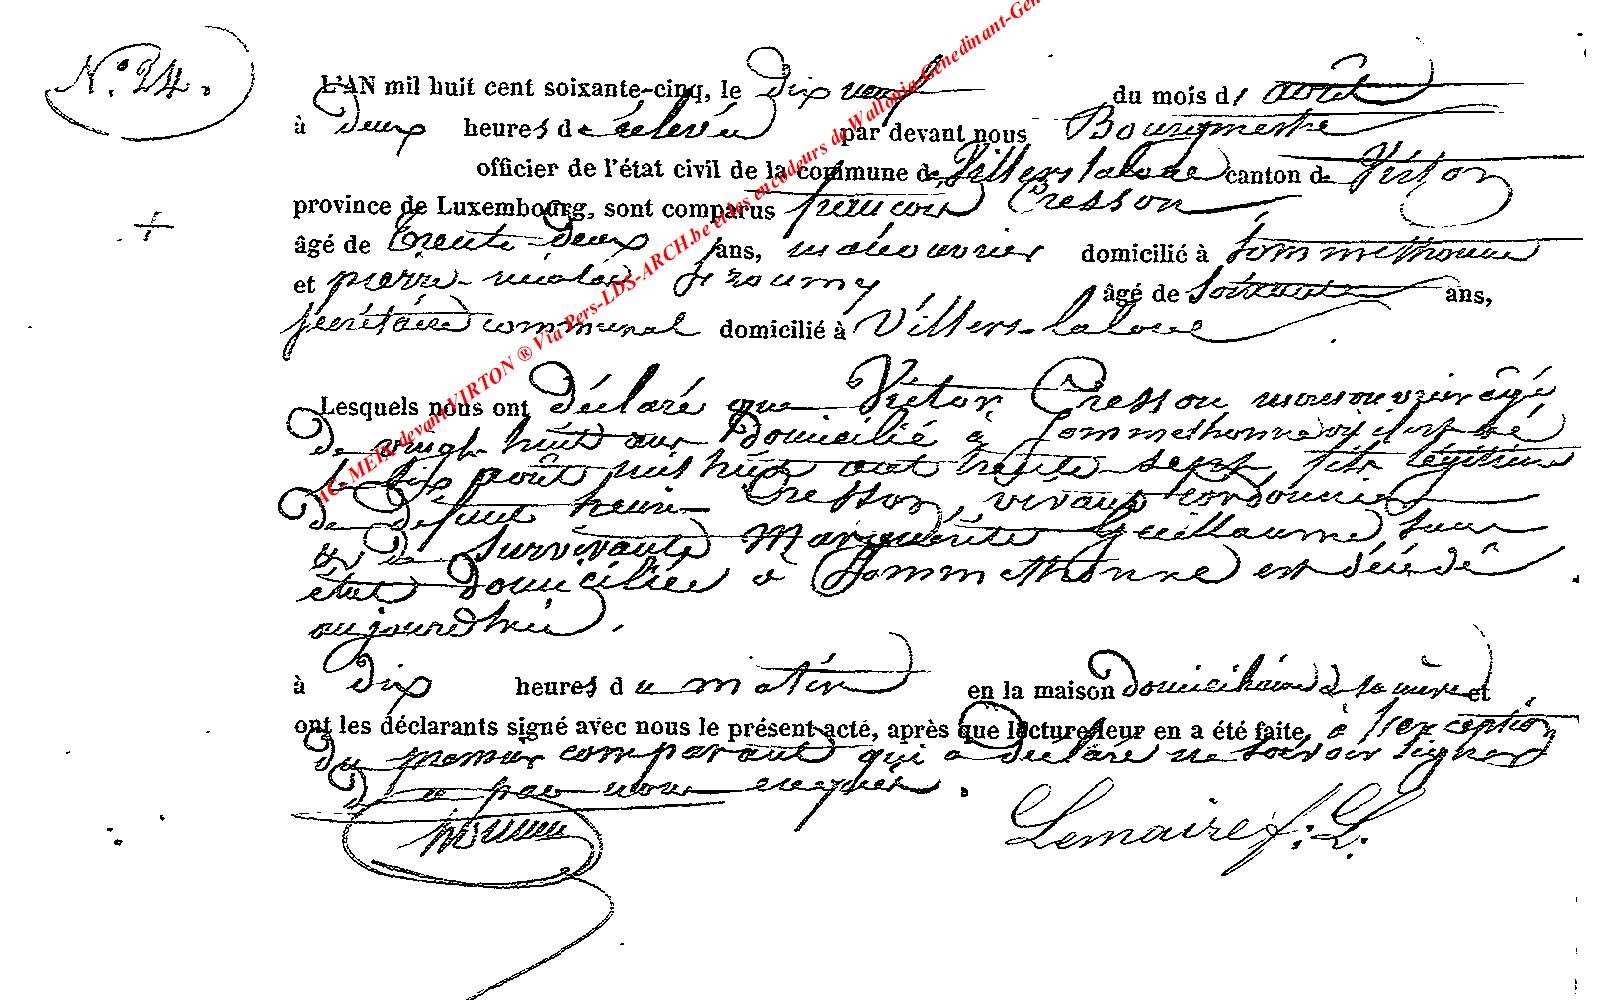 N.° 24.
L'AN mil huit cent soixante-cinq, le dix neuf du mois d' août
à deux heures de relevée par devant nous Bourgmestre
officier de l'état civil de la commune de Villers laloue canton de Virton
province de Luxembourg, sont comparus françois Cresson
âgé de trente-deux ans, manouvrier domicilié à Sommethonne
et pierre-nicolas age de Soixante ans,
secrétaire communal domicilié à Villers-laloue
Lesquels nous ont déclaré que Victor Cresson manouvrier âgé
de vingt-huit ans domicilié à Sommethonne où il est né
le dix août mil huit cent trente sept, fils légitime
de défunt henri Cresson, vivant cordonnier
& de survivante Marguérite Guillaume sans
état domiciliée à Sommethonne est décédé
aujourd'hui.
à dix heures du matin en la maison domiciliaire de sa mère et
ont les déclarants signé avec nous le présent acte, après que lecture leur en a été faite, à l'exception
du premier comparant qui a déclaré ne savoir signer
de ce par nous enquis.
Lemaire f: L.
AC MEIX devant VIRTON ® Via Pers-LDS-ARCH.be et les encodeurs de Wallonia Genedinant-Gen